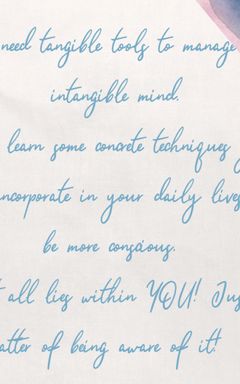 need tangible tools to manage
intangible mind.
learn some concrete techniques
incorporate in your daily lives
be more conscious.
all lies within YOU! Jus
atter of being aware of it!